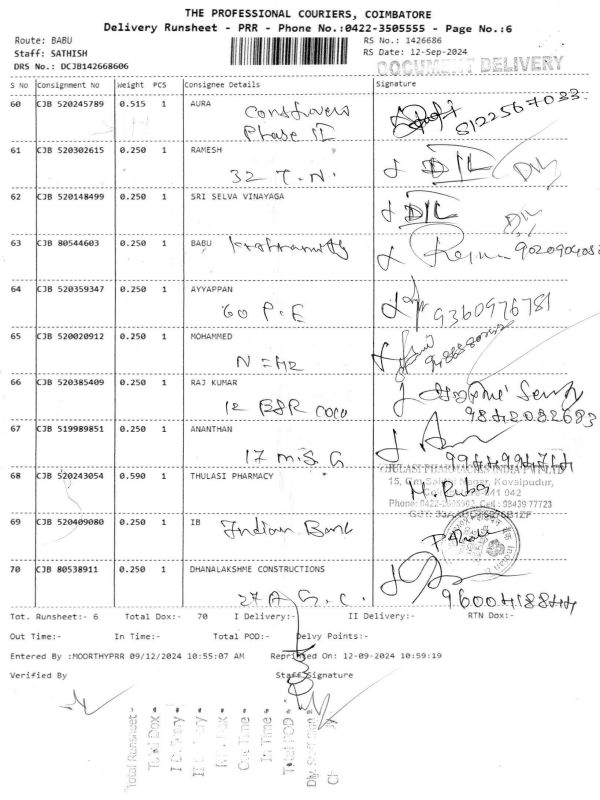 THE PROFESSIONAL COURIERS, COIMBATORE
Delivery Runsheet - PRR - Phone No.:0422-3505555 - Page No.:6
Route: BABU RS No.: 1426686
Staff: SATHISH RS Date: 12-Sep-2024
DRS No.: DCJB142668606 DOCUMENT DELIVERY
S No Consignment No Weight PCS Consignee Details Signature
60 CJB 520245789 0.515 1 AURA
Phase II 8122567033
61 CJB 520302615 0.250 1 RAMESH
32 T.N. D/L D/L
62 CJB 520148499 0.250 1 SRI SELVA VINAYAGA
D/L D/L
63 CJB 80544603 0.250 1 BABU
64 CJB 520359347 0.250 1 AYYAPPAN
60 P.E 9360976781
65 CJB 520020912 0.250 1 MOHAMMED
66 CJB 520385409 0.250 1 RAJ KUMAR
12 BSR COCO 9842082683
67 CJB 519989851 0.250 1 ANANTHAN
17 M.S.G
68 CJB 520243054 0.590 1 THULASI PHARMACY
THULASI PHARMACIES INDIA PVT LTD
Nagar, Kovaipudur,
641 042
Cell : 93439 77723
69 CJB 520409080 0.250 1 IB Indian Bank
70 CJB 80538911 0.250 1 DHANALAKSHME CONSTRUCTIONS
27 A G.C. 9600418844
Tot. Runsheet:- 6 Total Dox:- 70 I Delivery:- II Delivery:- RTN Dox:-
Out Time:- In Time:- Total POD:- Delvy Points:-
Entered By :MOORTHYPRR 09/12/2024 10:55:07 AM Reprinted On: 12-09-2024 10:59:19
Verified By Staff Signature
Total Runsheet
Total Dox
I Delivery
II Delivery
Out Time
In Time
Total POD